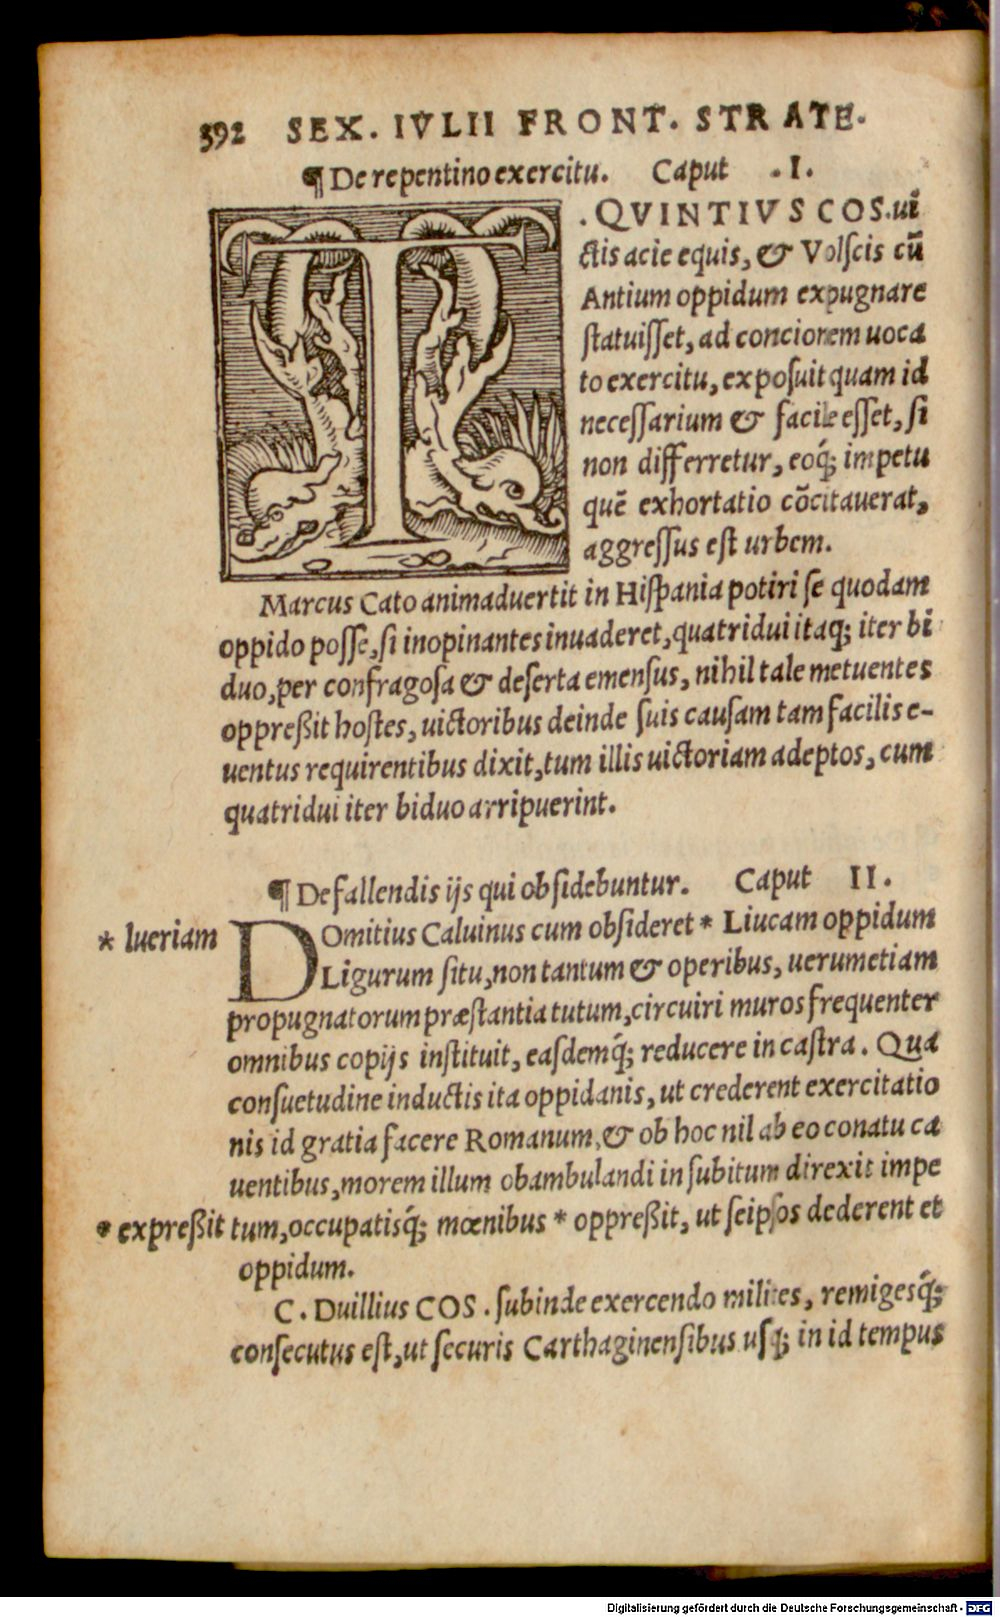 392 SEX. IVLII FRONT. STRATE.
¶ De repentino exercitu. Caput .I.
T. QVINTIVS COS. ui
ctis acie equis, & Volscis cū
Antium oppidum expugnare
statuisset, ad concionem uoca
to exercitu, exposuit quam id
necessarium & facile esset, si
non differretur, eoq́; impetu
quē exhortatio cōcitauerat,
aggressus est urbem.
Marcus Cato animaduertit in Hispania potiri se quodam
oppido posse, si inopinantes inuaderet, quatridui itaq; iter bi
duo, per confragosa & deserta emensus, nihil tale metuentes
oppreßit hostes, uictoribus deinde suis causam tam facilis e-
uentus requirentibus dixit, tum illis uictoriam adeptos, cum
quatridui iter biduo arripuerint.
¶ De fallendis ijs qui obsidebuntur. Caput II.
* lueriam
DOmitius Caluinus cum obsideret * Liucam oppidum
Ligurum situ, non tantum & operibus, uerumetiam
propugnatorum præstantia tutum, circuiri muros frequenter
omnibus copijs instituit, easdemq́; reducere in castra. Qua
consuetudine inductis ita oppidanis, ut crederent exercitatio
nis id gratia facere Romanum, & ob hoc nil ab eo conatu ca
uentibus, morem illum obambulandi in subitum direxit impe
* expreßit
tum, occupatisq́; mœnibus * oppreßit, ut seipsos dederent et
oppidum.
C. Duillius COS. subinde exercendo milites, remigesq́;
consecutus est, ut securis Carthaginensibus usq; in id tempus
Digitalisierung gefördert durch die Deutsche Forschungsgemeinschaft - DFG